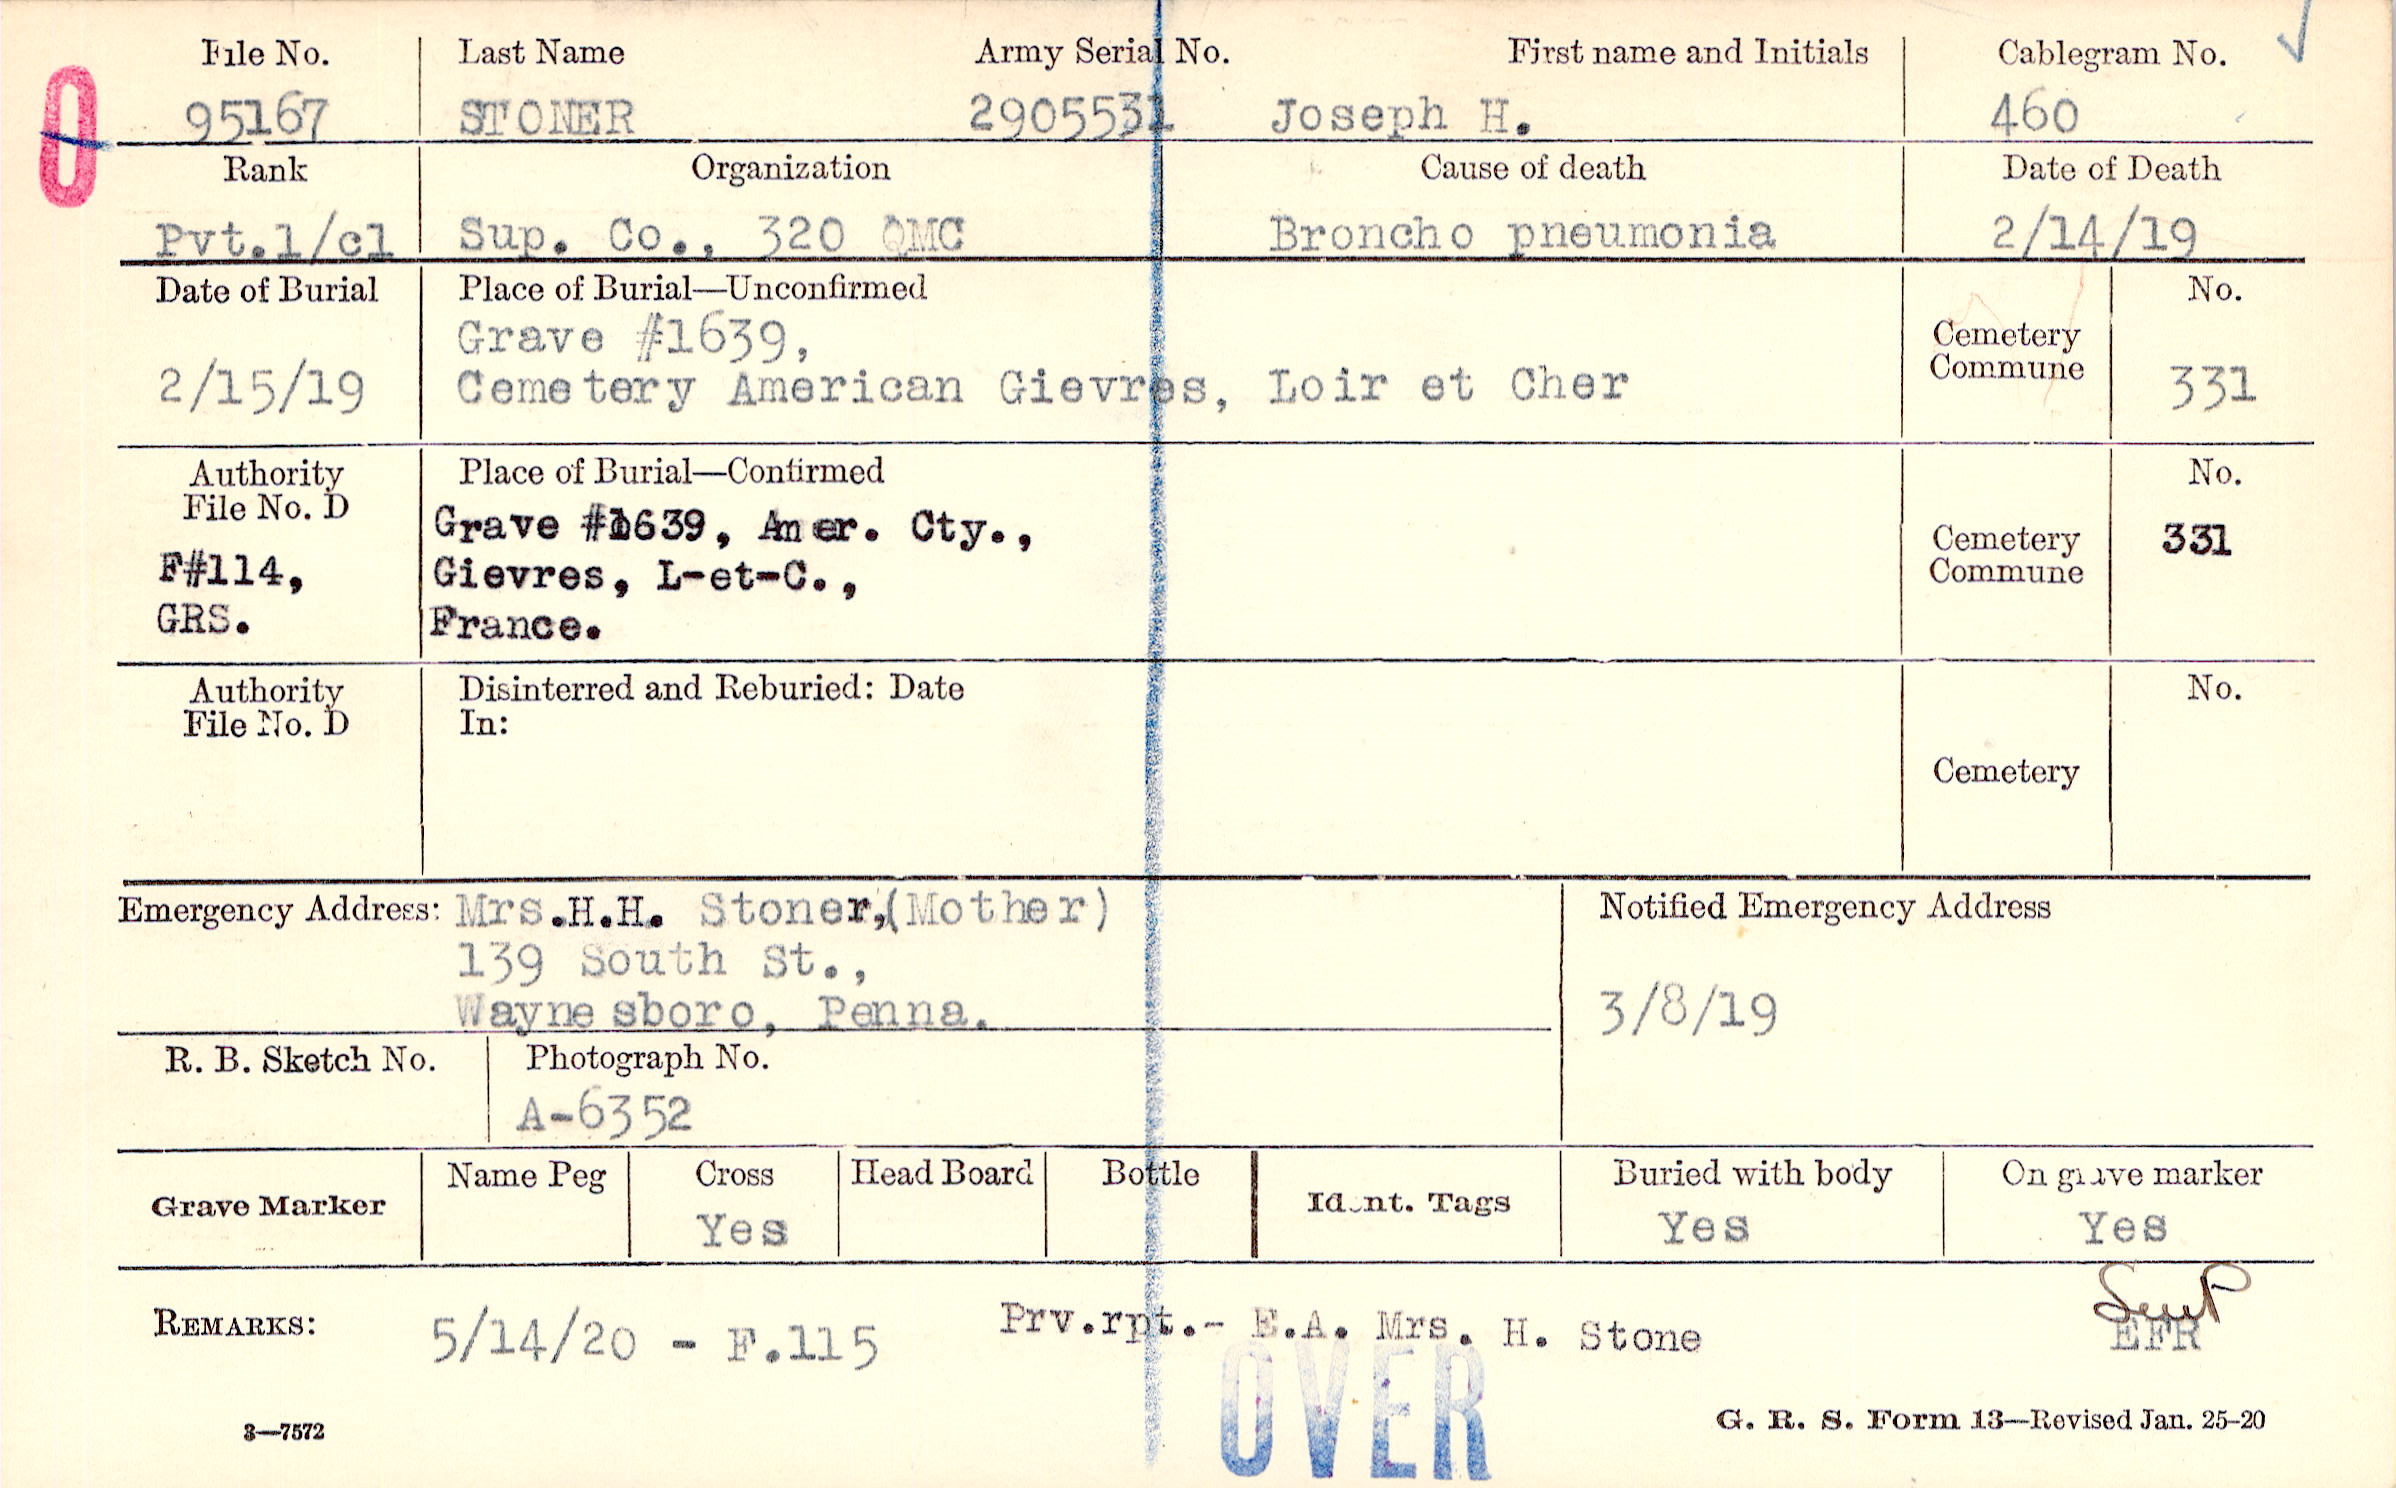 File No. Last Name Army Serial No. First name and Initials Cablegram No.
O 95167 STONER 2905531 Joseph H. 460
Rank Organization Cause of death Date of Death
Pvt.1/cl Sup. Co., 320 QMC Broncho pneumonia 2/14/19
Date of Burial Place of Burial—Unconfirmed No.
Grave #1639, Cemetery
2/15/19 Cemetery American Gievres, Loir et Cher Commune 331
Authority Place of Burial—Confirmed No.
File No. D
Grave #1639, Amer. Cty., Cemetery 331
F#114, Gievres, L-et-C., Commune
GRS. France.
Authority Disinterred and Reburied: Date No.
File No. D In:
Cemetery
Emergency Address: Mrs.H.H. Stoner,(Mother) Notified Emergency Address
139 South St.,
Waynesboro, Penna. 3/8/19
R. B. Sketch No. Photograph No.
A-6352
Grave Marker Name Peg Cross Head Board Bottle Ident. Tags Buried with body On grave marker
Yes Yes Yes
REMARKS: 5/14/20 - F.115 Prv.rpt.- E.A. Mrs. H. Stone EFR
OVER
3—7572 G. R. S. Form 13—Revised Jan. 25-20